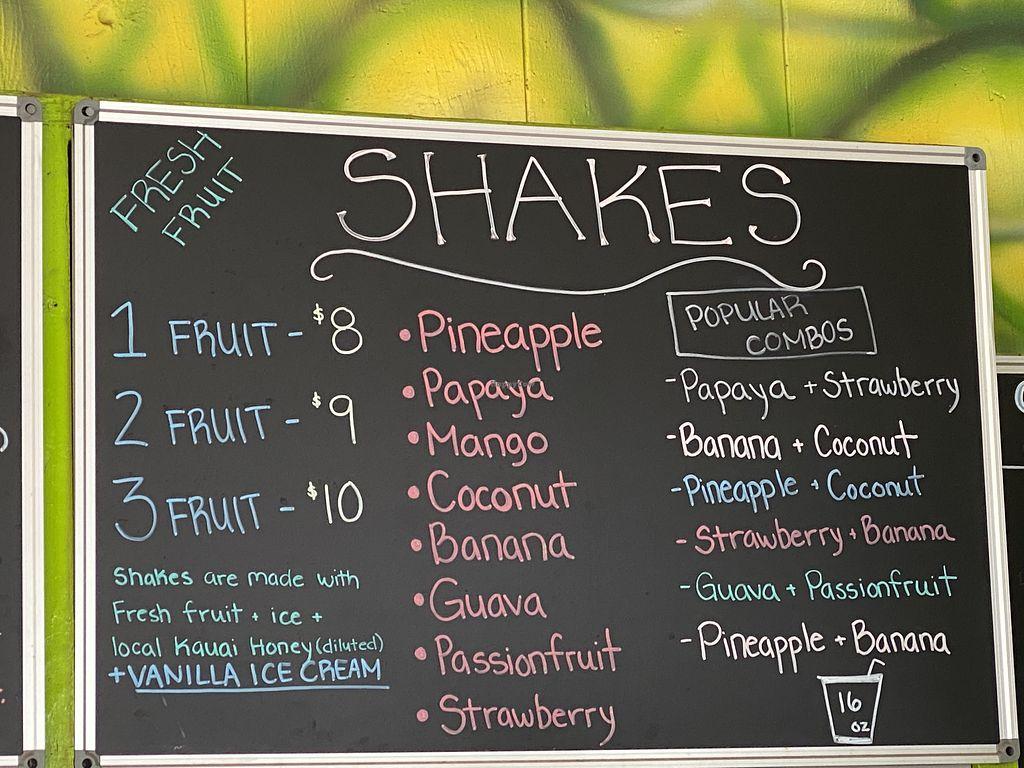 FRESH
FRUIT
SHAKES
1 FRUIT - $8
2 FRUIT - $9
3 FRUIT - $10
Shakes are made with
Fresh fruit + ice +
local Kauai Honey (diluted)
+ VANILLA ICE CREAM
• Pineapple
• Papaya
• Mango
• Coconut
• Banana
• Guava
• Passionfruit
• Strawberry
POPULAR
COMBOS
- Papaya + Strawberry
- Banana + Coconut
- Pineapple + Coconut
- Strawberry + Banana
- Guava + Passionfruit
- Pineapple + Banana
16
oz